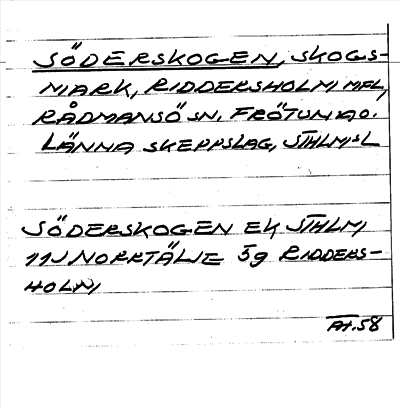 SÖDERSKOGEN, SKOGS-
MARK, RIDDERSHOLM MFL,
RÅDMANSÖ SN. FRÖTUNA O.
LÄNNA SKEPPSLAG, STHLMSL
SÖDERSKOGEN EK STHLM
11J NORRTÄLJE 5g RIDDERS-
HOLM
At.58